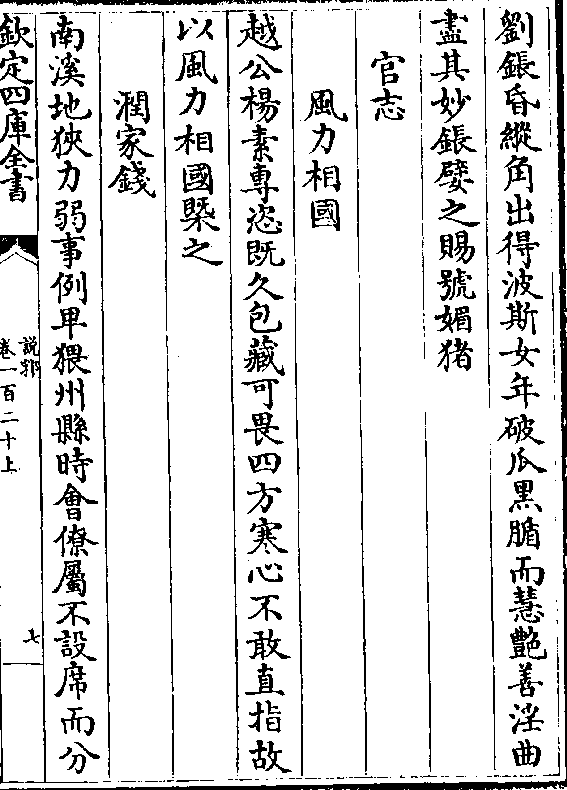 劉鋹昏縱角出得波斯女年破瓜黒腯而慧艶善淫曲
盡其妙鋹嬖之賜號媚猪
官志
風力相國
越公楊素專恣既久包藏可畏四方寒心不敢直指故
以風力相國槩之
潤家錢
南溪地狹力弱事例卑猥州縣時會僚屬不設席而分
欽定四庫全書
說郛
卷一百二十上
七